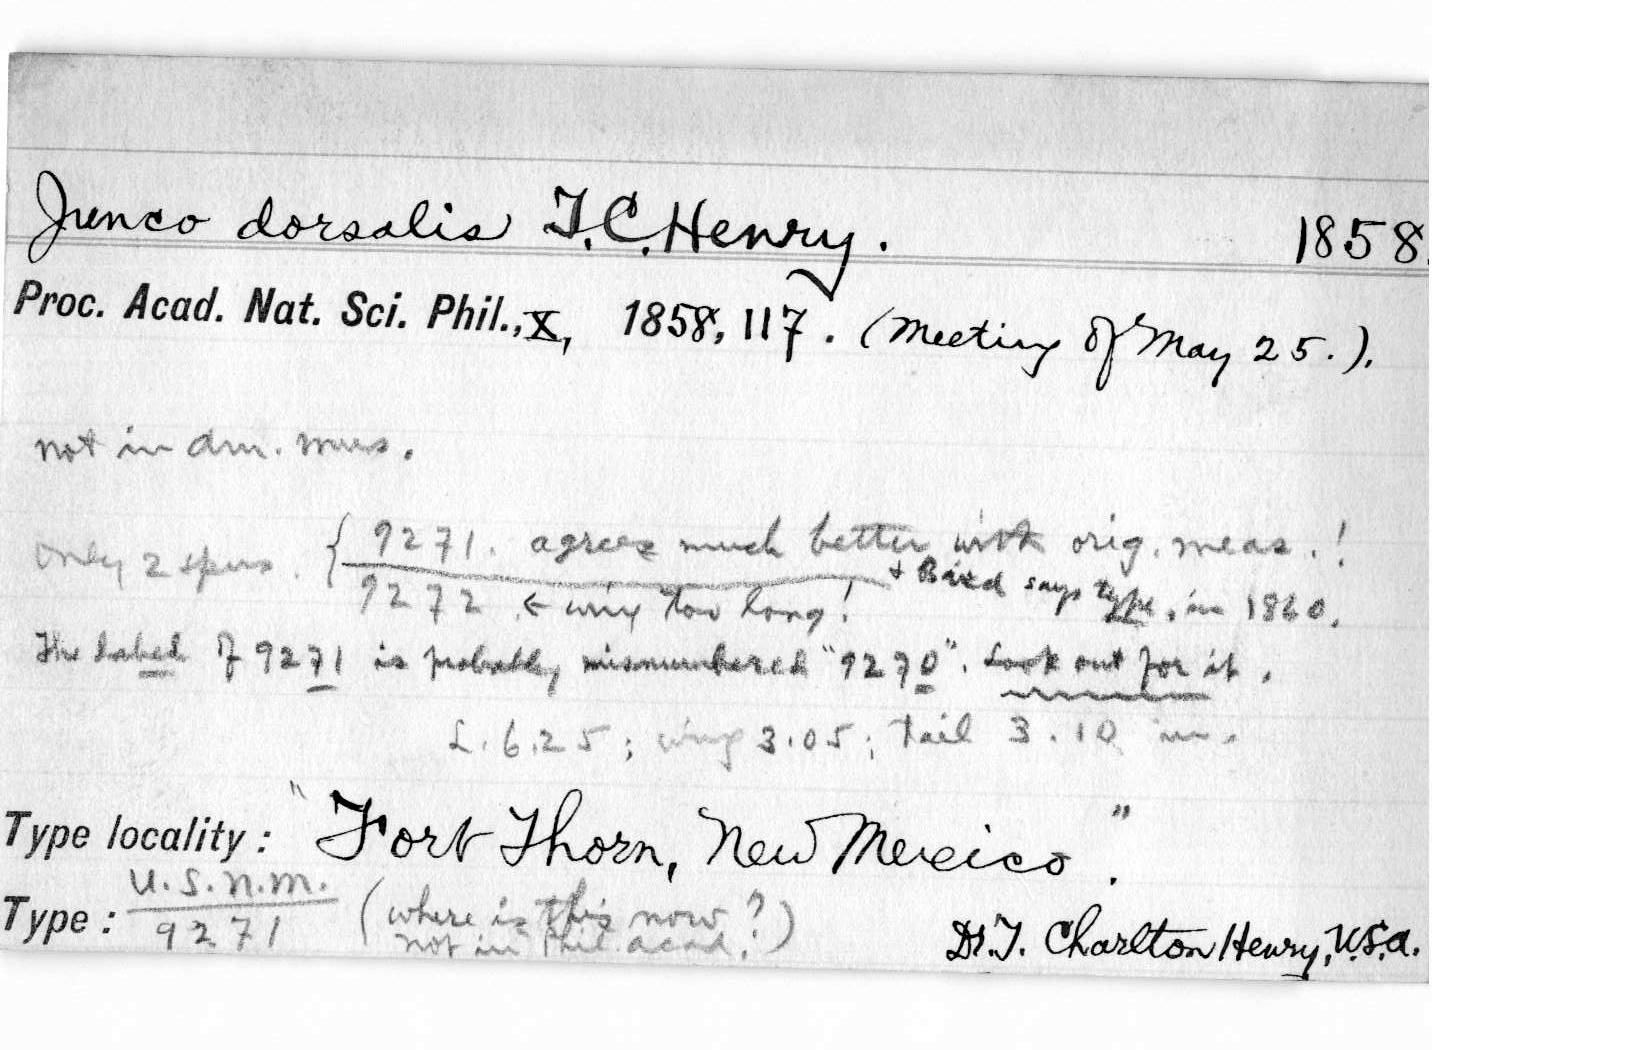 Junco dorsalis T.C. Henry. 1858.
Proc. Acad. Nat. Sci. Phil., X, 1858, 117. (Meeting of May 25.).
not in Am. Mus.
only 2 spms. { 9271. agrees much better with orig. meas.!
+ Baird says type, in 1860.
9272 ← wing too long!
The label of 9271 is probably mismumbered "9270". Look out for it.
L. 6.25; wing 3.05; tail 3.10 in.
Type locality: "Fort Thorn, New Mexico".
Type: U.S.N.M. 9271 (where is this now?)
not in Phil. Acad.
Dr. T. Charlton Henry, U.S.A.